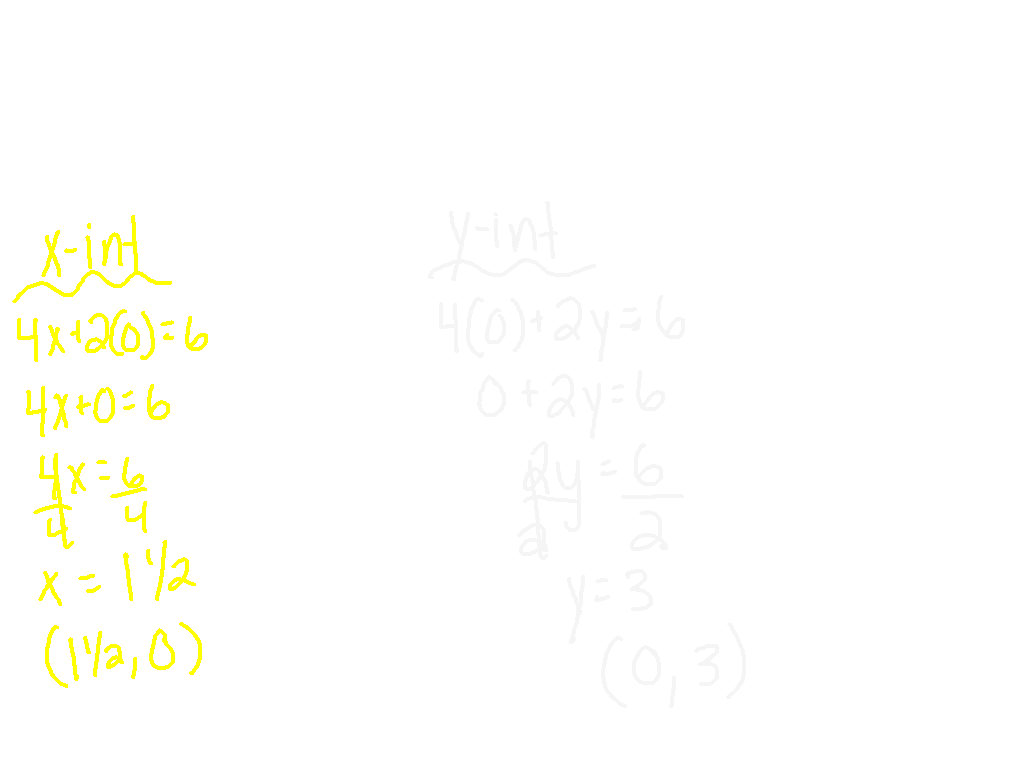 x-int
4x+2(0)=6
4x+0=6
4x=6
4 4
x = 1 1/2
(1 1/2, 0)
y-int
4(0)+2y=6
0+2y=6
2y=6
2 2
y=3
(0,3)